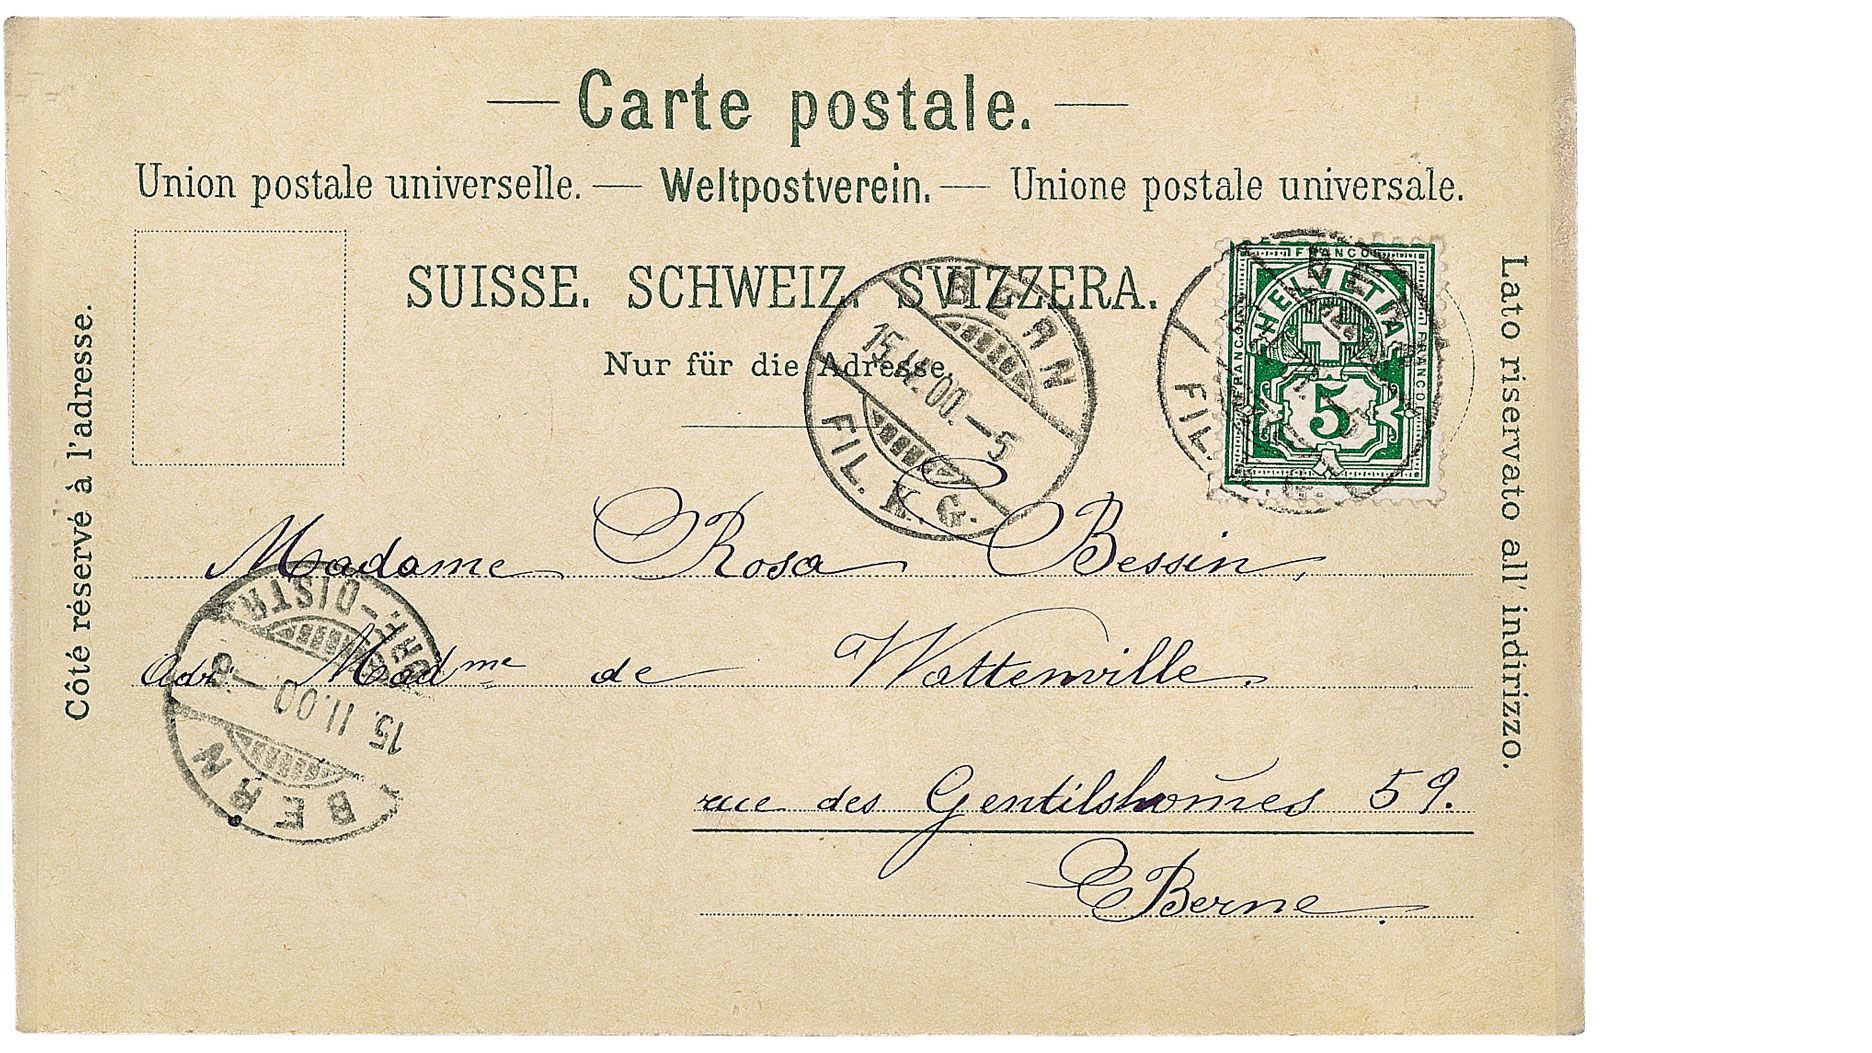 Carte postale.
Union postale universelle. — Weltpostverein. — Unione postale universale.
SUISSE. SCHWEIZ. SVIZZERA.
Nur für die Adresse.
Côté réservé à l'adresse.
Lato riservato all' indirizzo.
FRANCO
FRANCO
FRANCO
HELVETIA
5
BERN
15.11.00.—5
FIL. K. G.
FIL.
G.
Madame Rosa Bessin,
Adr. Madme de Wattenville.
rue des Gentilshom̄es 59.
Berne.
BERN
15.11.00—6
BRF.-DISTR.